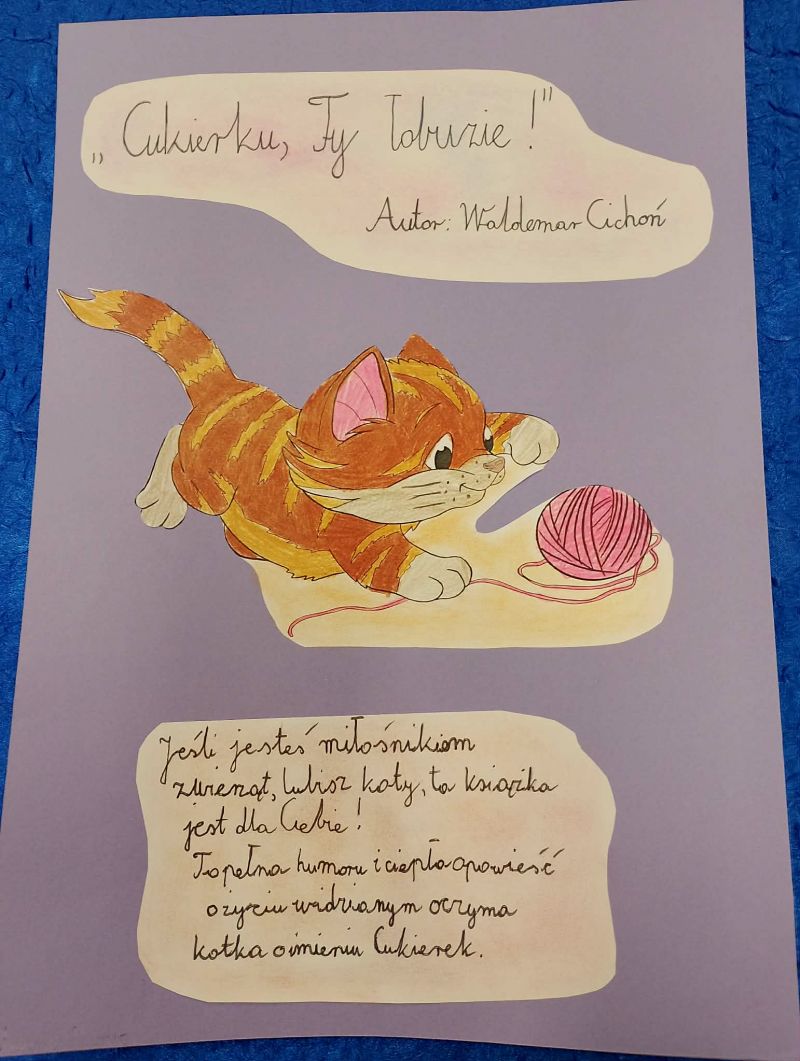 „Cukierku, Ty łobuzie!"
Autor: Waldemar Cichoń
Jeśli jesteś miłośnikiem
zwierząt, lubisz koty, ta książka
jest dla Ciebie!
To pełna humoru i ciepła opowieść
o życiu widzianym oczyma
kotka o imieniu Cukierek.